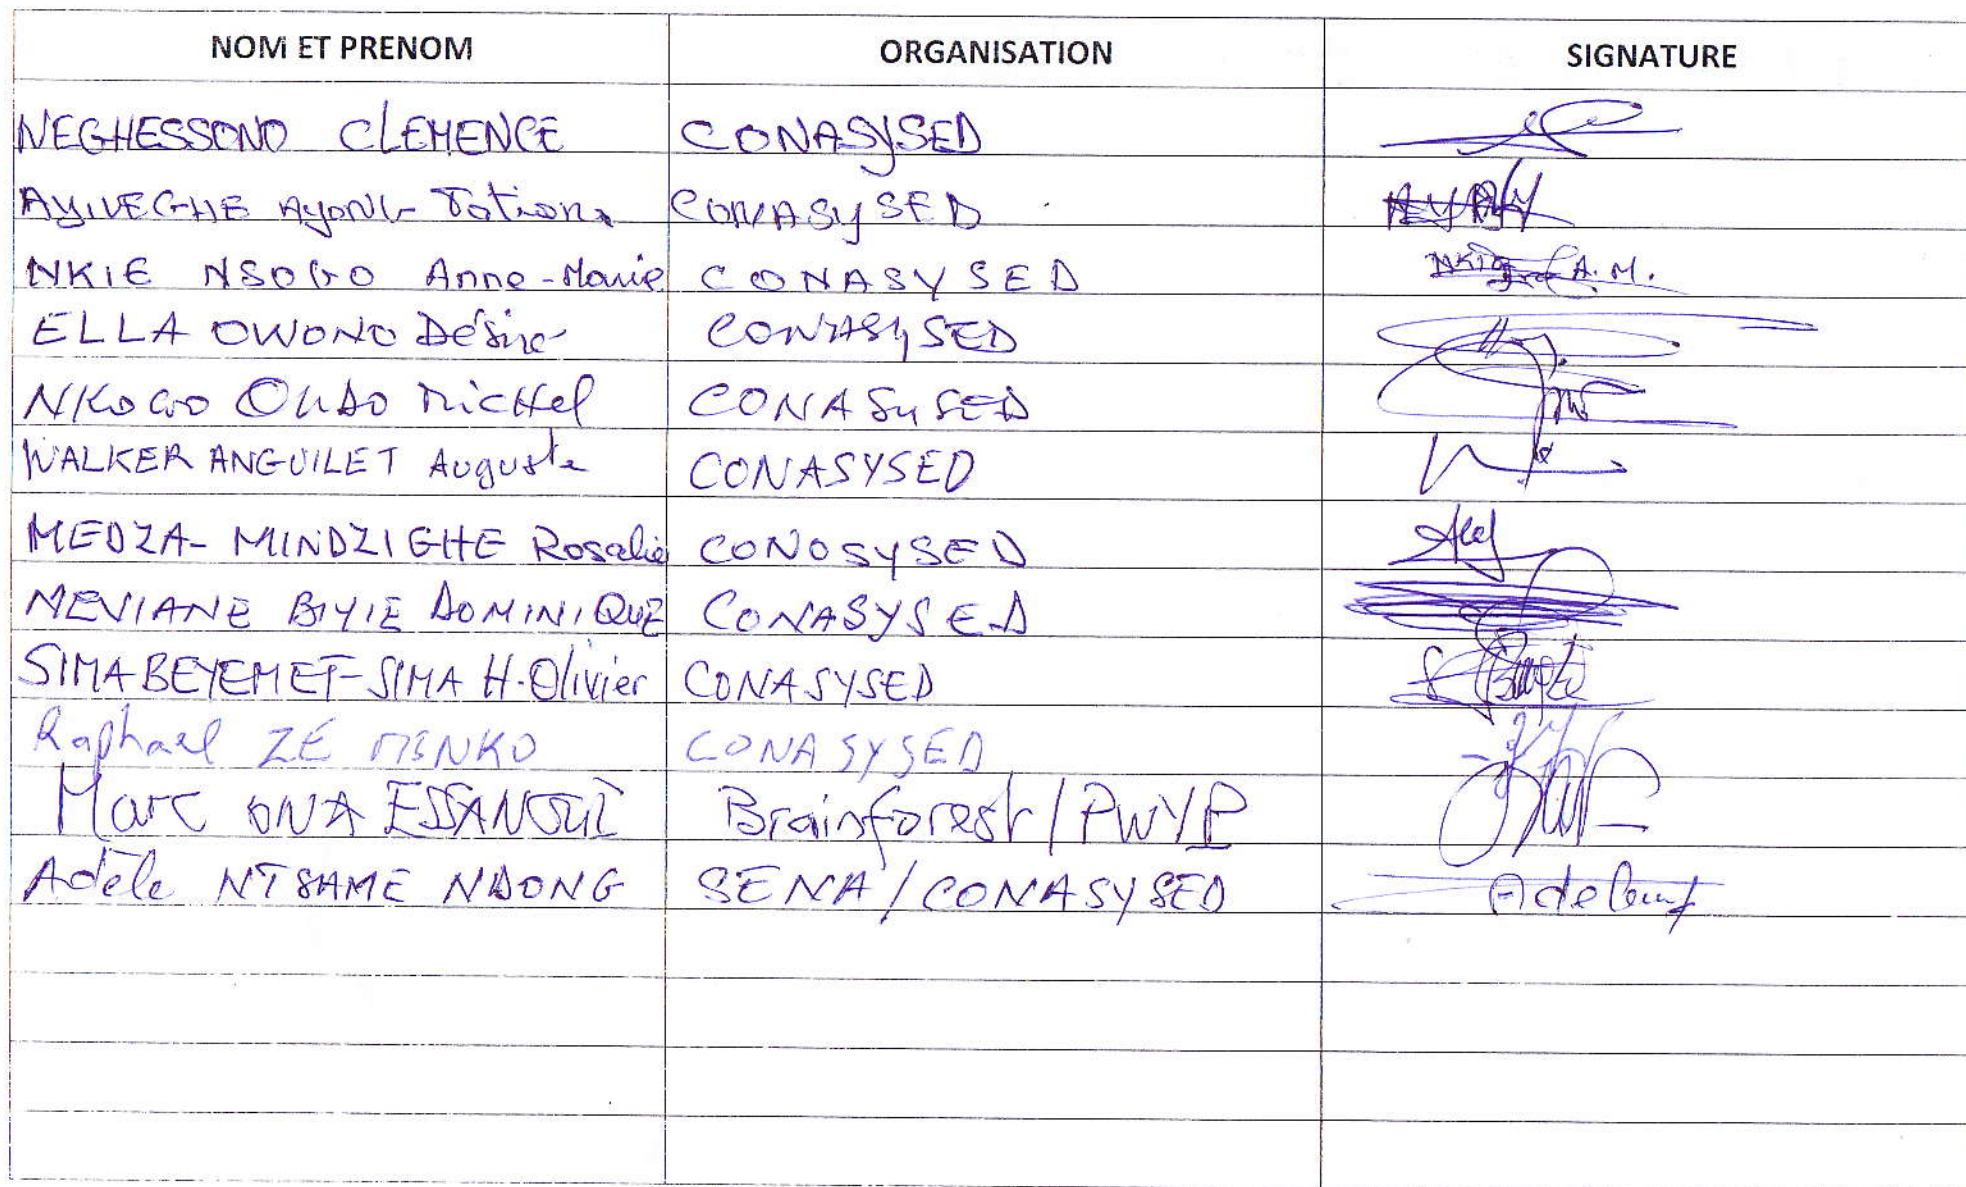 NOM ET PRENOM ORGANISATION SIGNATURE
NEGHESSONO CLEMENCE CONASYSED
AYIVEGHE Ayong Tatiana CONASYSED
NKIE NSOGO Anne-Marie CONASYSED NKIE A.M.
ELLA OWONO Désiré CONASYSED
NKOGO ONDO Michel CONASYSED
WALKER ANGUILET Auguste CONASYSED
MEDZA-MINDZIGHE Rosalie CONOSYSED
MEVIANE BIYIE DOMINIQUE CONASYSED
SIMA BEYEMET-SIMA H.Olivier CONASYSED
Raphael ZÉ MENKO CONASYSED
Marc ONA ESSANGUI Brainforest/PWYP
Adèle NTSAME NDONG SENA/CONASYSED